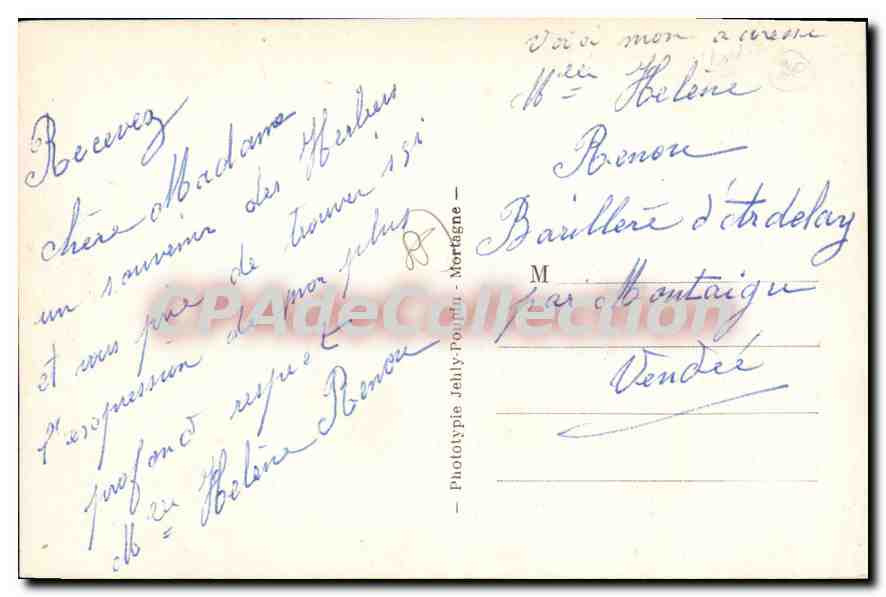 Recevez
chère Madame
un souvenir des Herbiers
et vous prie de trouver ici
l'expression de mon plus
profond respect
Mlle Helène Renou
Phototypie Jehly-Poupin - Mortagne
Voiçi mon adresse
Mlle Helène
Renou
Barillère d'Ardelay
M
par Montaigu
Vendée
CPAdeCollection.com